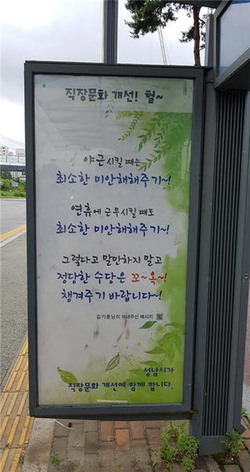 직장문화 개선! 헐~
야근시킬 때는
최소한 미안해해주기~!
연휴에 근무시킬 때도
최소한 미안해해주기~!
그렇다고 말만하지 말고
정당한 수당은 꼬~옥~!
챙겨주기 바랍니다~!
김기훈님이 보내주신 메시지
성남시가
직장문화 개선에 함께 합니다